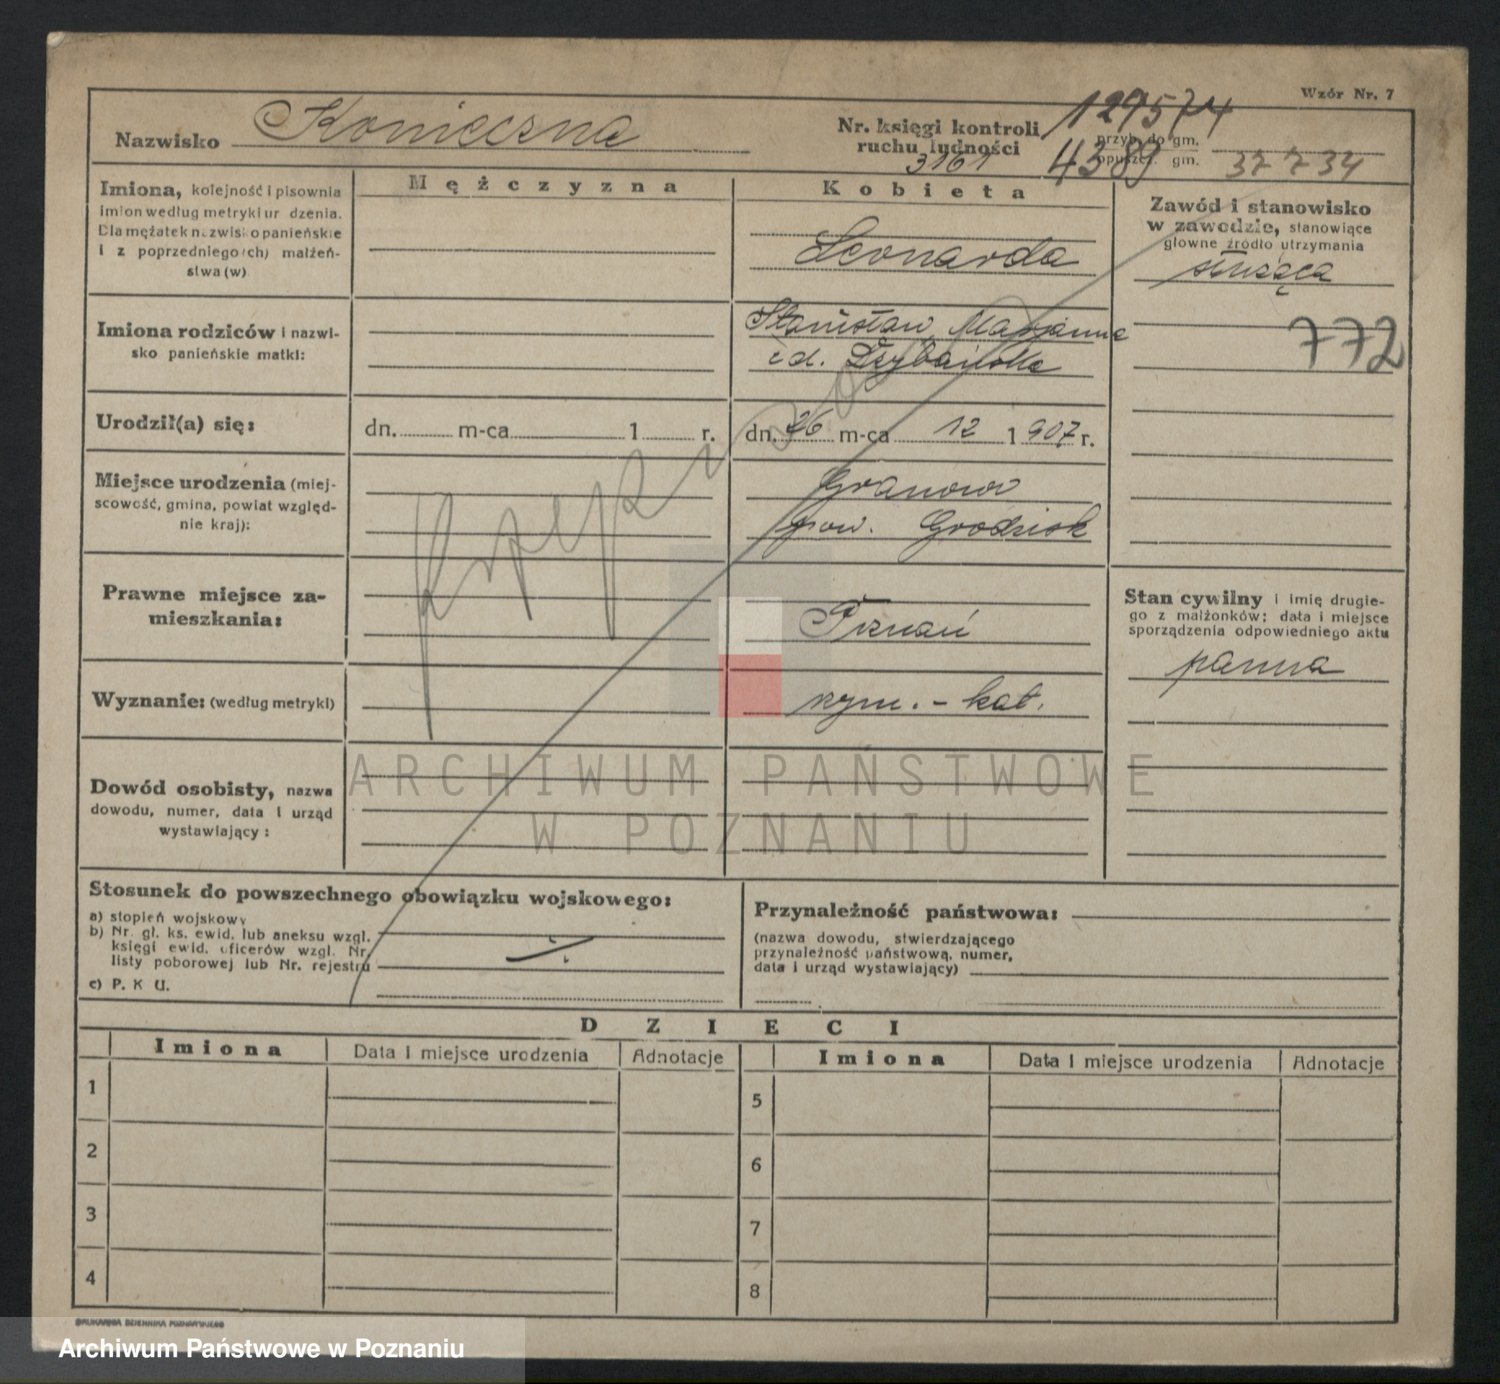 Wzór Nr. 7
Nazwisko Konieczna
Nr. księgi kontroli ruchu ludności
129574
przyb. do gm.
3161
4389
opuszcz. gm.
37 7 34
Imiona, kolejność i pisownia
imion według metryki ur dzenia.
Dla mężatek nazwisko panieńskie
i z poprzedniego (ch) małżeń-
stwa (w)
Mężczyzna
Kobieta
Leonarda
Zawód i stanowisko
w zawodzie, stanowiące
główne źródło utrzymania
służąca
772
Imiona rodziców i nazwi-
sko panieńskie matki:
Stanisław, Marianna
z d.
Urodził(a) się:
dn. m-ca 1 r.
dn. 26 m-ca 12 1907 r.
Miejsce urodzenia (miej-
scowość, gmina, powiat względ-
nie kraj):
Granowo
pow. Grodzisk
Prawne miejsce za-
mieszkania:
Poznań
Stan cywilny i imię drugie-
go z małżonków; data i miejsce
sporządzenia odpowiedniego aktu
panna
Wyznanie: (według metryki)
rzym. - kat.
Dowód osobisty, nazwa
dowodu, numer, data i urząd
wystawiający:
ARCHIWUM PAŃSTWOWE
W POZNANIU
Stosunek do powszechnego obowiązku wojskowego:
a) stopień wojskowy
b) Nr. gł. ks. ewid. lub aneksu wzgl.
księgi ewid. oficerów wzgl. Nr.
listy poborowej lub Nr. rejestru
c) P. K U.
Przynależność państwowa:
(nazwa dowodu, stwierdzającego
przynależność państwową, numer,
data i urząd wystawiający)
DZIECI
Imiona Data i miejsce urodzenia Adnotacje Imiona Data i miejsce urodzenia Adnotacje
1 5
2 6
3 7
4 8
DRUKARNIA DZIENNIKA POZNAŃSKIEGO
Archiwum Państwowe w Poznaniu